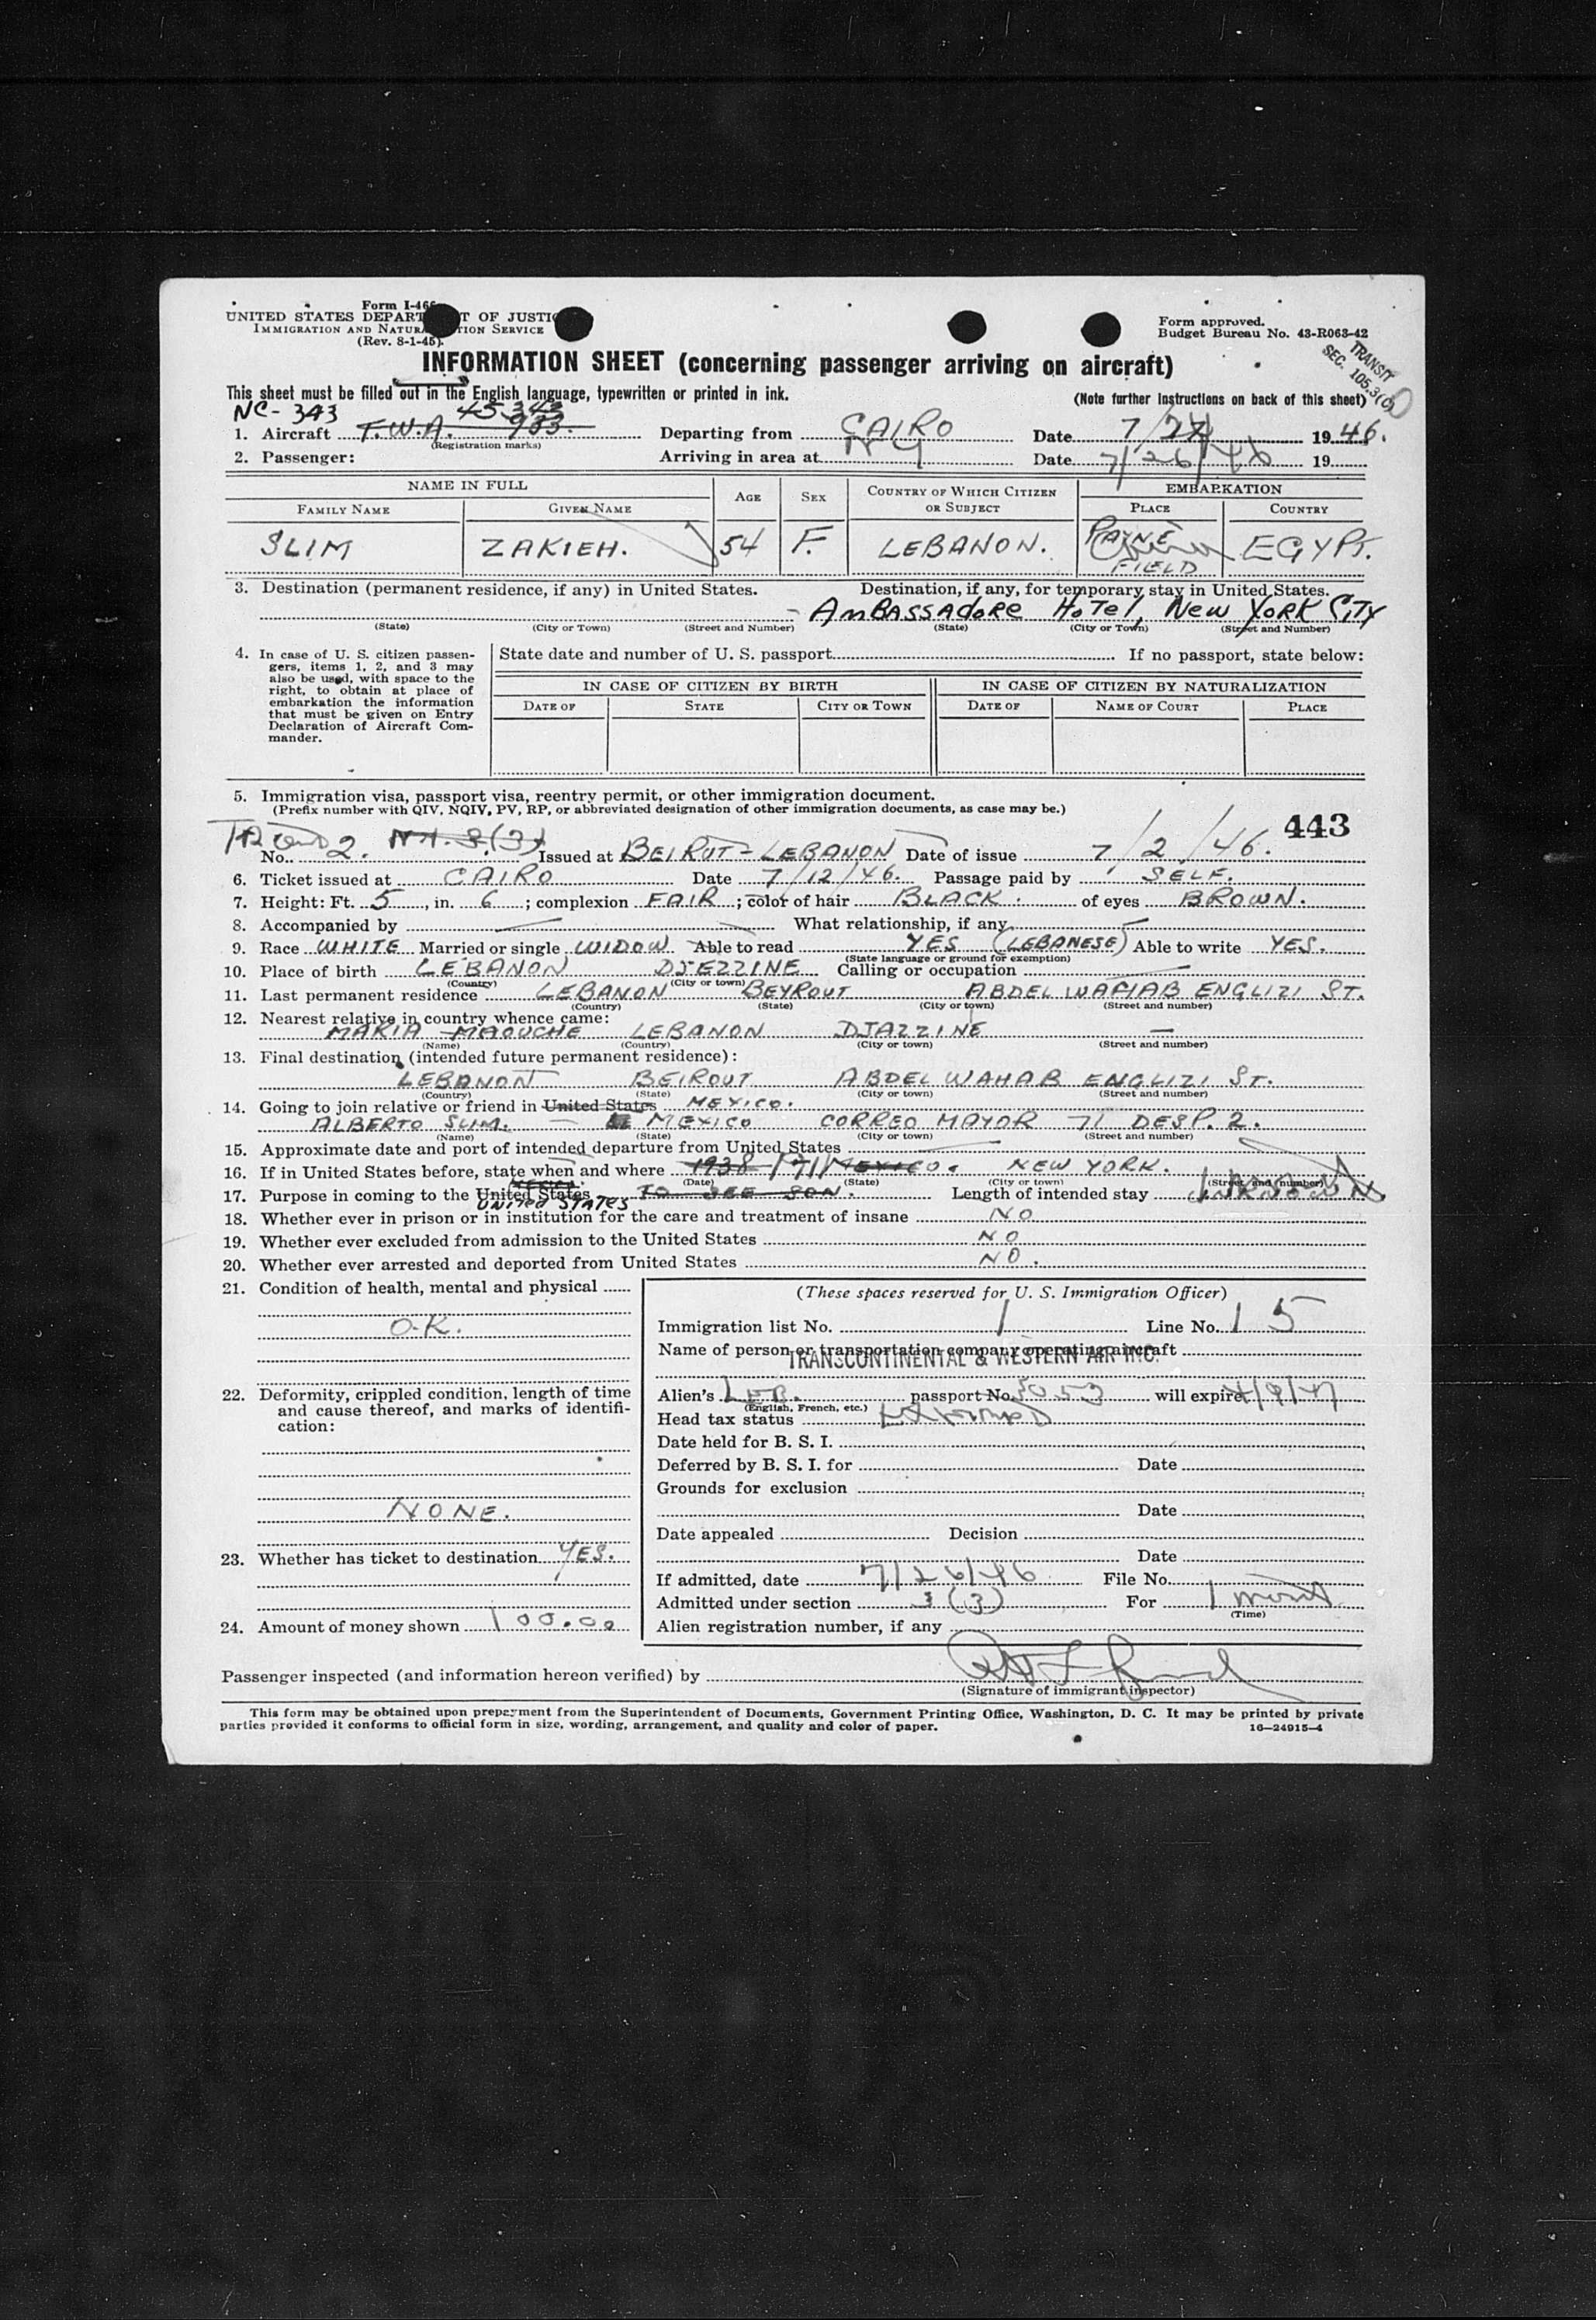 Form I-466
UNITED STATES DEPART T OF JUSTIC
IMMIGRATION AND NATUR TION SERVICE
(Rev. 8-1-45).
Form approved.
Budget Bureau No. 43-R063-42
TRANSIT
SEC. 105.3(C)
INFORMATION SHEET (concerning passenger arriving on aircraft)
This sheet must be filled out in the English language, typewritten or printed in ink.
(Note further instructions on back of this sheet)
NC-343 45343
1. Aircraft T.W.A. 933. Departing from CAIRO Date 7/24 1946.
(Registration marks)
2. Passenger: Arriving in area at NY Date 7/26/46 19
NAME IN FULL AGE SEX COUNTRY OF WHICH CITIZEN OR SUBJECT EMBARKATION
FAMILY NAME GIVEN NAME PLACE COUNTRY
SLIM ZAKIEH. 54 F. LEBANON. PAYNE FIELD EGYPT.
3. Destination (permanent residence, if any) in United States. Destination, if any, for temporary stay in United States.
AmBASSAdoRe HoTel, New YoRK CiTy
(State) (City or Town) (Street and Number) (State) (City or Town) (Street and Number)
4. In case of U. S. citizen passen-
gers, items 1, 2, and 3 may
also be used, with space to the
right, to obtain at place of
embarkation the information
that must be given on Entry
Declaration of Aircraft Com-
mander.
State date and number of U. S. passport If no passport, state below:
IN CASE OF CITIZEN BY BIRTH IN CASE OF CITIZEN BY NATURALIZATION
DATE OF STATE CITY OR TOWN DATE OF NAME OF COURT PLACE
5. Immigration visa, passport visa, reentry permit, or other immigration document.
(Prefix number with QIV, NQIV, PV, RP, or abbreviated designation of other immigration documents, as case may be.)
443
No. 2. 3(3) Issued at BEIRUT-LEBANON Date of issue 7/2/46.
6. Ticket issued at CAIRO Date 7/12/46. Passage paid by SELF.
7. Height: Ft. 5, in. 6; complexion FAIR; color of hair BLACK. of eyes BROWN.
8. Accompanied by — What relationship, if any —
9. Race WHITE Married or single WIDOW. Able to read YES (LEBANESE) Able to write YES.
(State language or ground for exemption)
10. Place of birth LEBANON DJEZZINE Calling or occupation —
(Country) (City or town)
11. Last permanent residence LEBANON BEYROUT ABDEL WAHAB ENGLIZI ST.
(Country) (State) (City or town) (Street and number)
12. Nearest relative in country whence came:
MARIA MAOUCHE LEBANON DJAZZINE —
(Name) (Country) (City or town) (Street and number)
13. Final destination (intended future permanent residence):
LEBANON BEIROUT ABDEL WAHAB ENGLIZI ST.
(Country) (State) (City or town) (Street and number)
14. Going to join relative or friend in United States MEXICO.
ALBERTO SLIM. — MEXICO CORREO MAYOR 71 DESP. 2.
(Name) (State) (City or town) (Street and number)
15. Approximate date and port of intended departure from United States —
16. If in United States before, state when and where 1938 MEXICO. NEW YORK.
(Date) (State) (City or town) (Street and number)
17. Purpose in coming to the United States TO SEE SON. Length of intended stay UNKNOWN
UNiTed STATES
18. Whether ever in prison or in institution for the care and treatment of insane NO
19. Whether ever excluded from admission to the United States NO
20. Whether ever arrested and deported from United States NO.
21. Condition of health, mental and physical
O.K.
22. Deformity, crippled condition, length of time
and cause thereof, and marks of identifi-
cation:
NONE.
23. Whether has ticket to destination YES.
24. Amount of money shown 100.00
(These spaces reserved for U. S. Immigration Officer)
Immigration list No. 1 Line No. 15
Name of person or transportation company operating aircraft
TRANSCONTINENTAL & WESTERN AIR INC.
Alien's LEB. passport No. 3053 will expire 4/9/47
(English, French, etc.)
Head tax status
Date held for B. S. I.
Deferred by B. S. I. for Date
Grounds for exclusion
Date
Date appealed Decision
Date
If admitted, date 7/26/46 File No.
Admitted under section 3(3) For 1 month
(Time)
Alien registration number, if any
Passenger inspected (and information hereon verified) by
(Signature of immigrant inspector)
This form may be obtained upon prepayment from the Superintendent of Documents, Government Printing Office, Washington, D. C. It may be printed by private
parties provided it conforms to official form in size, wording, arrangement, and quality and color of paper.
16—24915-4